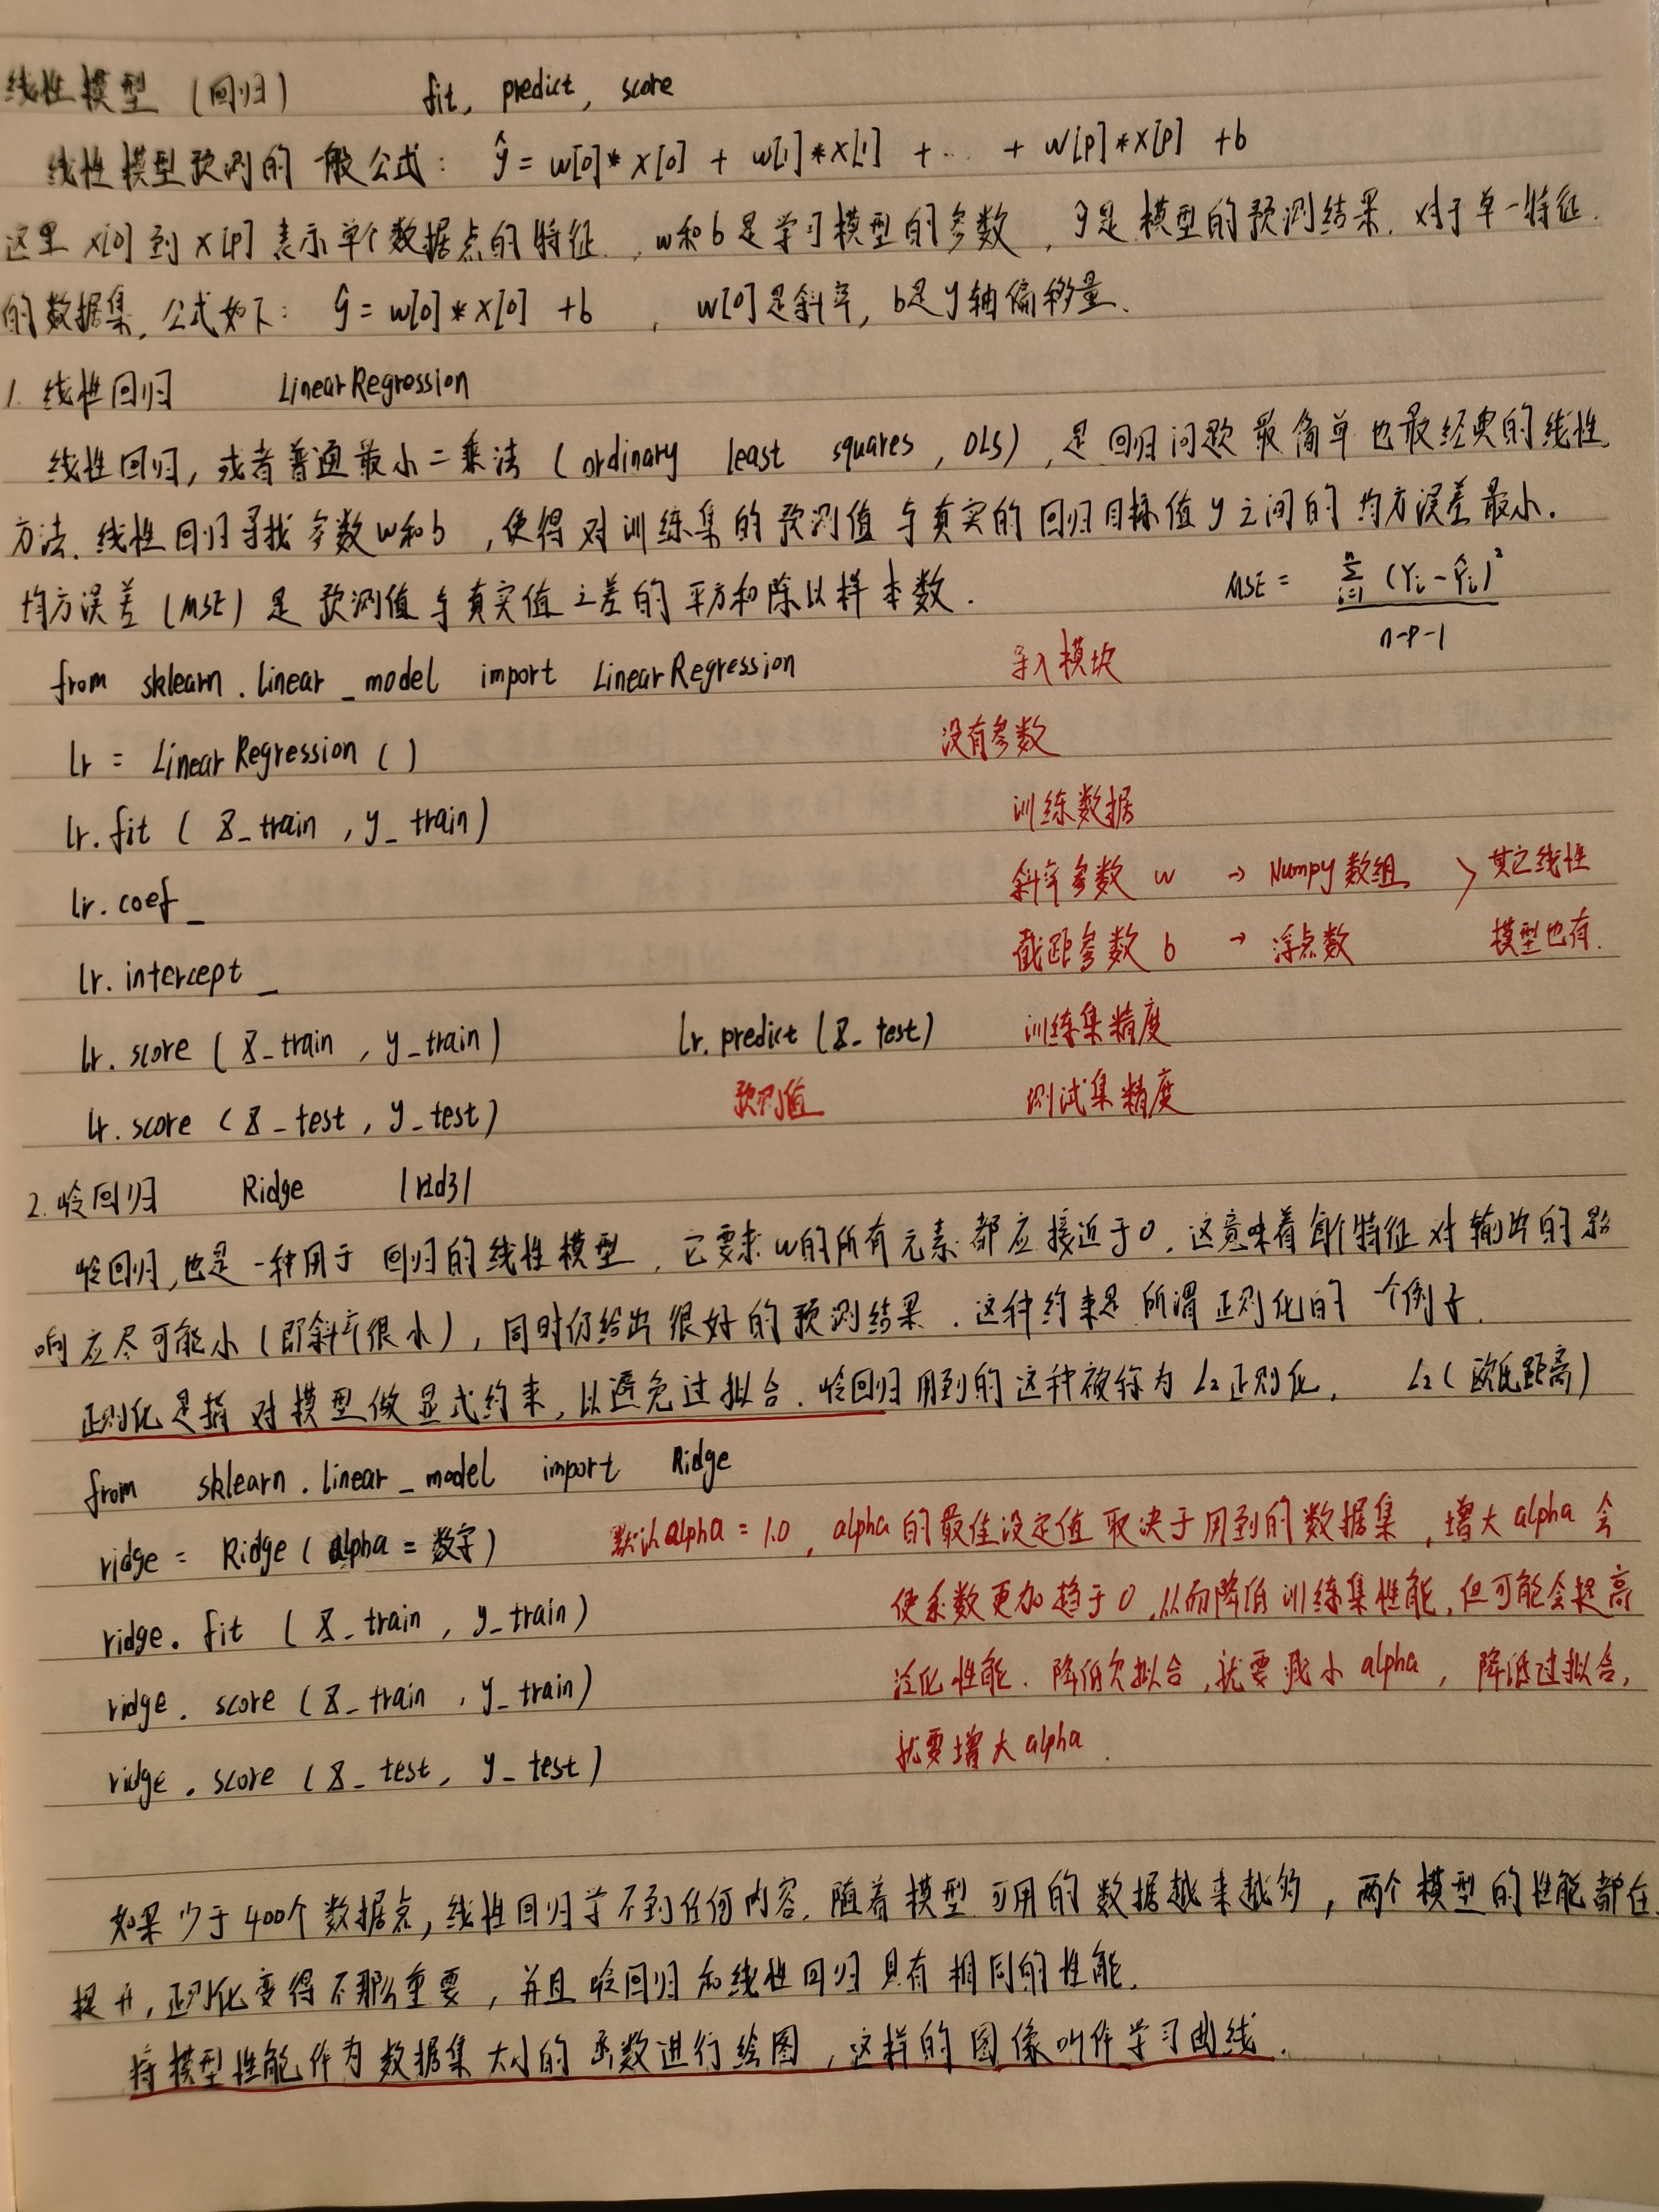 线性模型 (回归) fit, predict, score
线性模型预测的一般公式: ŷ = w[0]* x[0] + w[1]*x[1] + … + w[p]*x[p] + b
这里 x[0] 到 x[p] 表示单个数据点的特征, w和b是学习模型的参数, ŷ是模型的预测结果. 对于单一特征
的数据集, 公式如下: ŷ = w[0]*x[0] + b , w[0]是斜率, b是y轴偏移量.
1. 线性回归 LinearRegression
线性回归, 或者普通最小二乘法 (ordinary least squares, OLS), 是回归问题最简单也最经典的线性
方法. 线性回归寻找参数w和b, 使得对训练集的预测值与真实的回归目标值y之间的均方误差最小.
均方误差 (MSE) 是预测值与真实值之差的平方和除以样本数. MSE = \frac{\sum_{i=1}^{n} (Y_i - Ŷ_i)^2}{n-p-1}
from sklearn.linear_model import LinearRegression 导入模块
lr = LinearRegression () 没有参数
lr.fit ( X_train , y_train) 训练数据
lr.coef_ 斜率参数 w → Numpy数组 > 其它线性
lr.intercept_ 截距参数 b → 浮点数 模型也有.
lr.score ( X_train , y_train) lr.predict (X_test) 训练集精度
lr.score (X_test , y_test) 预测值 测试集精度
2. 岭回归 Ridge
岭回归, 也是一种用于回归的线性模型, 它要求w的所有元素都应接近于0. 这意味着每个特征对输出的影
响应尽可能小 (即斜率很小), 同时仍给出很好的预测结果. 这种约束是所谓正则化的一个例子.
正则化是指对模型做显式约束, 以避免过拟合. 岭回归用到的这种被称为 L₂正则化, L₂ (欧氏距离)
from sklearn.linear_model import Ridge
ridge = Ridge ( alpha = 数字) 默认alpha = 1.0, alpha的最佳设定值取决于用到的数据集, 增大alpha会
ridge.fit ( X_train , y_train) 使系数更加趋于0, 从而降低训练集性能, 但可能会提高
ridge.score ( X_train , y_train) 泛化性能. 降低欠拟合, 就要减小alpha, 降低过拟合,
ridge.score ( X_test, y_test) 就要增大alpha.
如果少于400个数据点, 线性回归学不到任何内容. 随着模型可用的数据越来越多, 两个模型的性能都在
提升, 正则化变得不那么重要, 并且岭回归和线性回归具有相同的性能.
将模型性能作为数据集大小的函数进行绘图, 这样的图像叫作学习曲线.